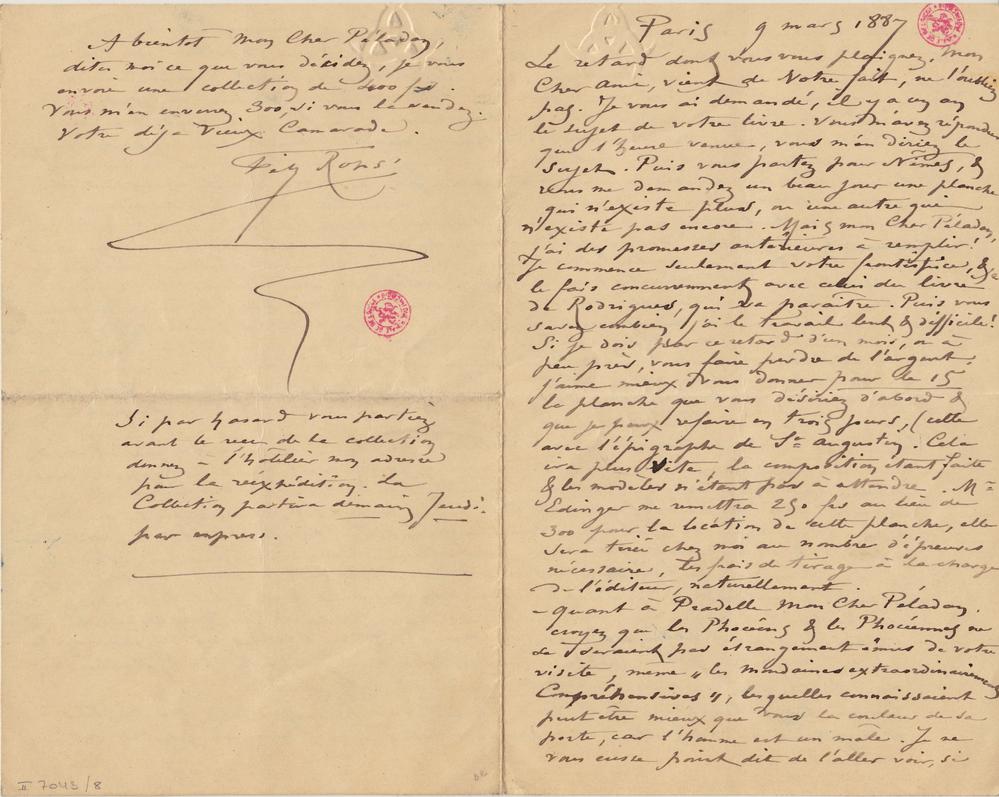 Paris 9 mars 1887
Le retard dont vous vous plaignez, mon
Cher Ami, vient de Votre fait, ne l'oubliez
pas. Je vous ai demandé, il y a un an
le sujet de votre livre. Vous m'avez répondu
que l'heure venue, vous m'en diriez le
Sujet. Puis vous partez pour Nîmes, &
vous me demandez un beau jour une planche
qui n'existe plus, ou une autre qui
n'existe pas encore. Mais mon Cher Péladan,
j'ai des promesses antérieures à remplir!
Je commence seulement votre frontispice, & je
le fais concurremment avec celui du livre
de Rodrigues, qui va paraître. Puis vous
savez combien j'ai le travail lent & difficile!
Si je dois par ce retard d'un mois, ou à
peu près, vous faire perdre de l'argent,
j'aime mieux vous donner pour le 15
la planche que vous désiriez d'abord &
que je peux refaire en trois jours, (celle
avec l'épigraphe de St Augustin. Cela
ira plus Vite, la composition étant faite
& les modèles n'étant pas à attendre. Mr
Edinger me remettra 250 frs au lieu de
300 pour la location de cette planche, elle
sera tirée chez moi au nombre d'épreuves
nécessaire, les frais de tirage à la charge
de l'éditeur, naturellement.
– Quant à Pradelle Mon Cher Péladan.
croyez que les Phocéens & les Phocéennes ne
se seraient pas étrangement émues de votre
visite, même „les mondaines extraordinairement
Compréhensives", lesquelles connaissaient
peut être mieux que vous la couleur de sa
porte, car l'homme est un mâle. Je ne
vous eusse point dit de l'aller voir, si
A bientot Mon Cher Péladan,
dites moi ce que vous décidez, je vous
envoie une collection de 400 fs.
Vous m'en enverrez 300, si vous la vendez.
Votre déjà Vieux Camarade.
Fély Rops
Si par hasard vous partiez
avant le reçu de la collection
donnez à l'hôtelier mon adresse
pour la réexpédition. La
Collection partira demain Jeudi
par express.
II 7043/8